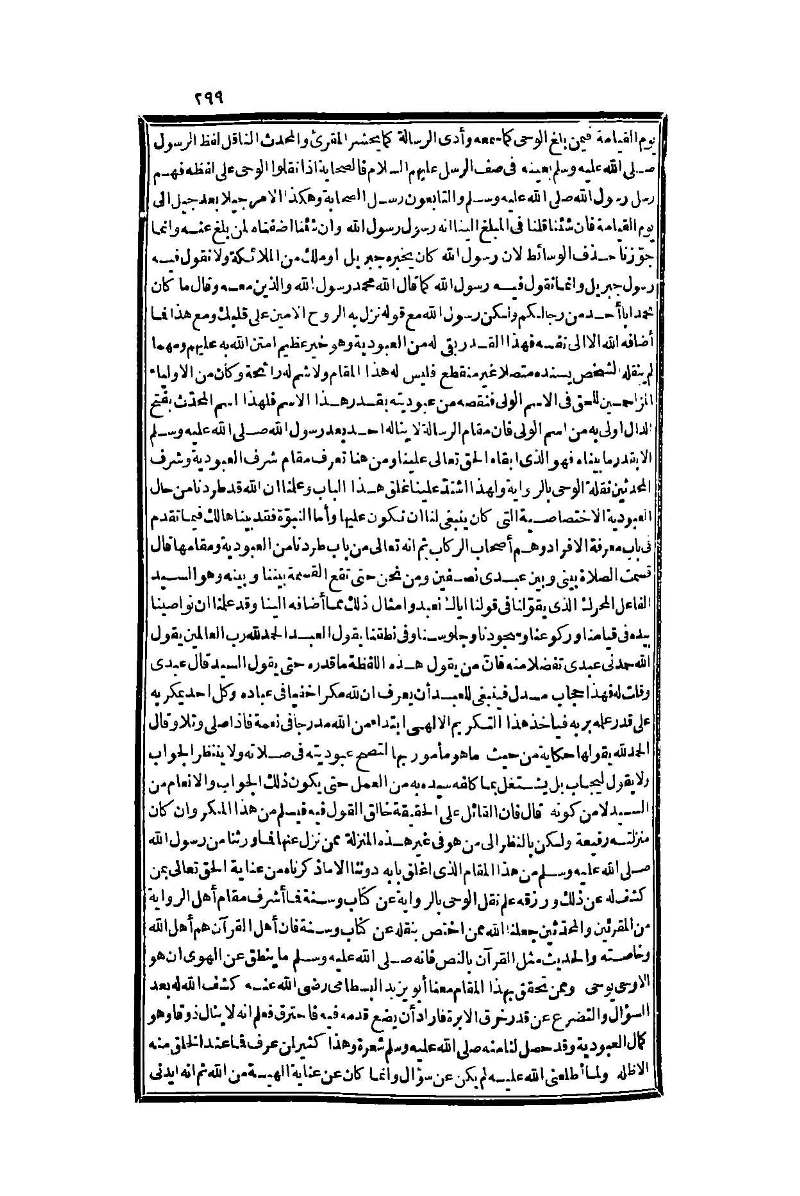 ٢٩٩
يوم القيامة فيمن بلغ الوحي كما سمعه وأدى الرسالة كما يحشر المقرئ والمحدث الناقل لفظ الرسول
صلى الله عليه وسلم بعينه فى صف الرسل عليهم السلام فالصحابة اذا نقلوا الوحى على لفظه فهم
رسل رسول الله صلى الله عليه وسلم والتابعون رسل الصحابة وهكذا الامر جيلا بعد جيل الى
يوم القيامة فان شئنا قلنا فى المبلغ الينا انه رسول رسول الله وان شئنا اضفناه لمن بلغ عنه وانما
جوّزنا حذف الوسائط لان رسول الله كان يخبره جبريل او ملك من الملائكة ولا نقول فيه
رسول جبريل وانما نقول فيه رسول الله كما قال الله محمد رسول الله والذين معه وقال ما كان
محمد ابا أحد من رجالكم ولكن رسول الله مع قوله نزل به الروح الامين على قلبك ومع هذا فما
أضافه الله الا الى نفسه فهذا القدر بقى له من العبودية وهو خير عظيم امتن الله به عليهم ومهما
لم ينقله الشخص بسنده متصلا غير منقطع فليس له هذا المقام ولا شم له رائحة وكان من الاولياء
المزاحمين للحق فى الاسم الولى فنقصه من عبوديته بقدر هذا الاسم فلهذا اسم المحدّث بفتح
الدال اولى به من اسم الولى فان مقام الرسالة لا يناله احد بعد رسول الله صلى الله عليه وسلم
الا بقدر ما بيناه فهو الذى ابقاه الحق تعالى علينا ومن هنا تعرف مقام شرف العبودية وشرف
المحدثين نقلة الوحى بالرواية ولهذا اشتدّ علينا غلق هذا الباب وعلمنا ان الله قد طردنا من حال
العبودية الاختصاصية التى كان ينبغى لنا ان نكون عليها وأما النبوّة فقد بيناها لك فيما تقدم
فى باب معرفة الافراد وهم أصحاب الركاب ثم انه تعالى من باب طردنا من العبودية ومقامها قال
قسمت الصلاة بينى وبين عبدى نصفين ومن نحن حتى تقع القسمة بيننا وبينه وهو السيد
الفاعل المحرك الذى يقوّلنا فى قولنا اياك نعبد وامثال ذلك مما أضافه الينا وقد علمنا ان نواصينا
بيده فى قيامنا وركوعنا وسجودنا وجلوسنا وفى نطقنا يقول العبد الحمد لله رب العالمين يقول
الله حمدنى عبدى تفضلا منه فانّ من يقول هذه اللفظة ما قدره حتى يقول السيد قال عبدى
وقلت له فهذا حجاب مسدل فينبغى للعبد أن يعرف ان لله مكرا خفيا فى عباده وكل احد يمكر به
على قدر علمه بربه فيأخذ هذا التكريم الالهى ابتداء من الله مدرجا فى نعمة فاذا صلى وتلا وقال
الحمد لله يقولها حكاية من حيث ما هو مأمور بها لتصح عبوديته فى صلاته ولا ينتظر الجواب
ولا يقول ليجاب بل يشتغل بما كلفه سيده به من العمل حتى يكون ذلك الجواب والانعام من
السيد لا من كونه قال فان القائل على الحقيقة خالق القول فيه فيسلم من هذا المكر وان كان
منزلته رفيعة ولكن بالنظر الى من هو فى غير هذه المنزلة ممن نزل عنها فما ورثنا من رسول الله
صلى الله عليه وسلم من هذا المقام الذى اغلق بابه دوننا الا ما ذكرناه من عناية الحق تعالى بمن
كشف له عن ذلك ورزقه علم نقل الوحى بالرواية عن كتاب وسنة فما أشرف مقام أهل الرواية
من المقرئين والمحدّثين جعلنا الله ممن اختص بنقله عن كتاب وسنة فان أهل القرآن هم أهل الله
وخاصته والحديث مثل القرآن بالنص فانه صلى الله عليه وسلم ما ينطق عن الهوى ان هو
الا وحي يوحى وممن تحقق بهذا المقام معنا أبو يزيد البسطامى رضى الله عنه كشف الله له بعد
السؤال والتضرع عن قدر خرق الابرة فاراد أن يضع قدمه فيه فاحترق فعلم انه لا ينال ذوقا وهو
كمال العبودية وقد حصل لنا منه صلى الله عليه وسلم شعرة وهذا كثير لمن عرف فما عند الخلق منه
الا ظله ولما أطلعنى الله عليه لم يكن عن سؤال وانما كان عن عناية الهية من الله ثم انه ايدنى